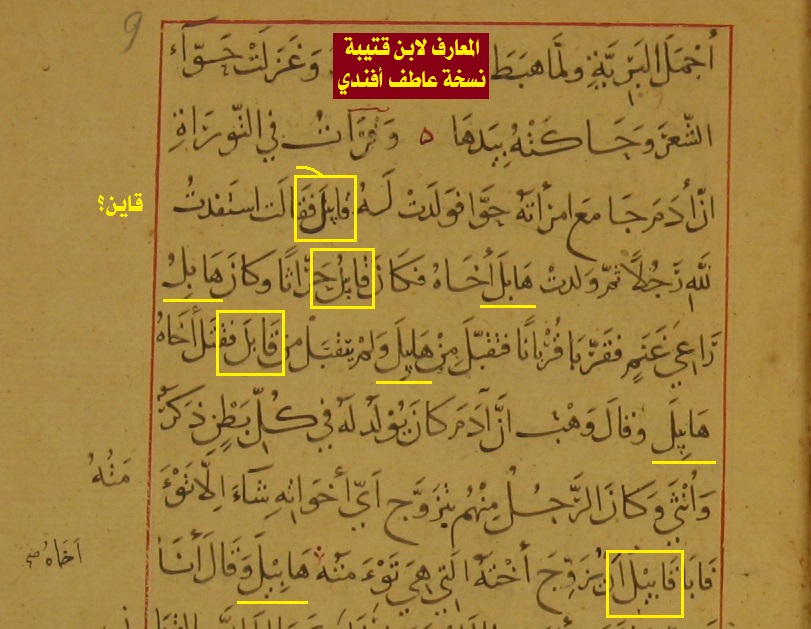 9
المعارف لابن قتيبة
نسخة عاطف أفندي
أجمل البرية ولما هبط وغزلت حواء
الشعر وحاكته بيدها ه وقرأت في التوراة
ان آدم جامع امرأته حوا فولدت له قايل فقالت استفدت
قاين؟
لله رجلا ثم ولدت هابل أخاه فكان قابل حراثا وكان هابل
راعي غنم فقربا قربانا فتقبل من هابيل ولم يتقبل من قابل فقتل أخاه
هابيل وقال وهب ان آدم كان يولد له في كل بطن ذكر
وأنثى وكان الرجل منهم يتزوج أي أخواته شاء الا توء
مته
فابا قابيل ان يزوج أخته التي هي توء مته هابيل وقال أنا
أخاه صح